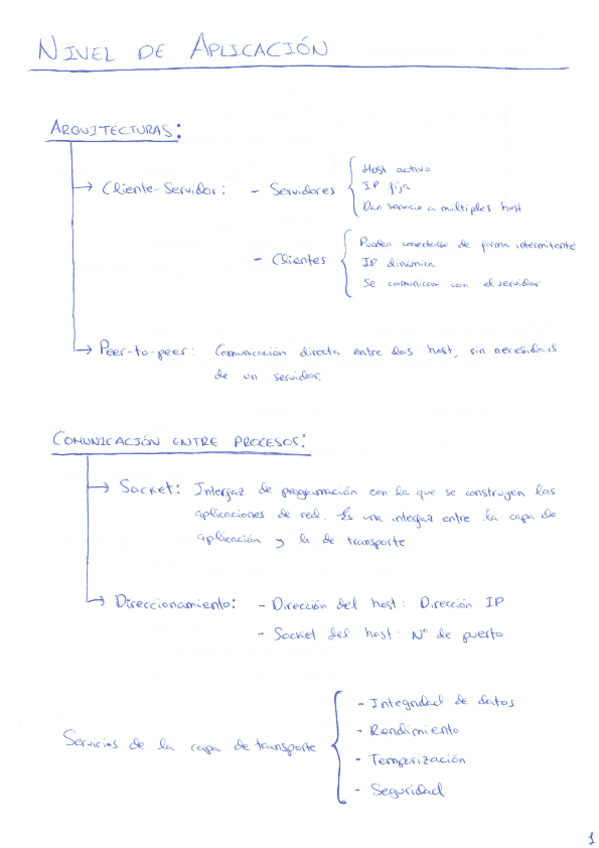 NIVEL DE APLICACIÓN
ARQUITECTURAS:
→ Cliente-Servidor: - Servidores
Host activo
IP fija
Dan servicio a multiples host
- Clientes
Pueden conectarse de forma intermitente
IP dinámica
Se comunican con el servidor
→ Peer-to-peer: Comunicación directa entre dos host, sin necesidad
de un servidor.
COMUNICACIÓN ENTRE PROCESOS:
→ Socket: Interfaz de programación con la que se construyen las
aplicaciones de red. Es una interfaz entre la capa de
aplicación y la de transporte
→ Direccionamiento: - Dirección del host: Dirección IP
- Socket del host: Nº de puerto
Servicios de la capa de transporte
- Integridad de datos
- Rendimiento
- Temporización
- Seguridad
1